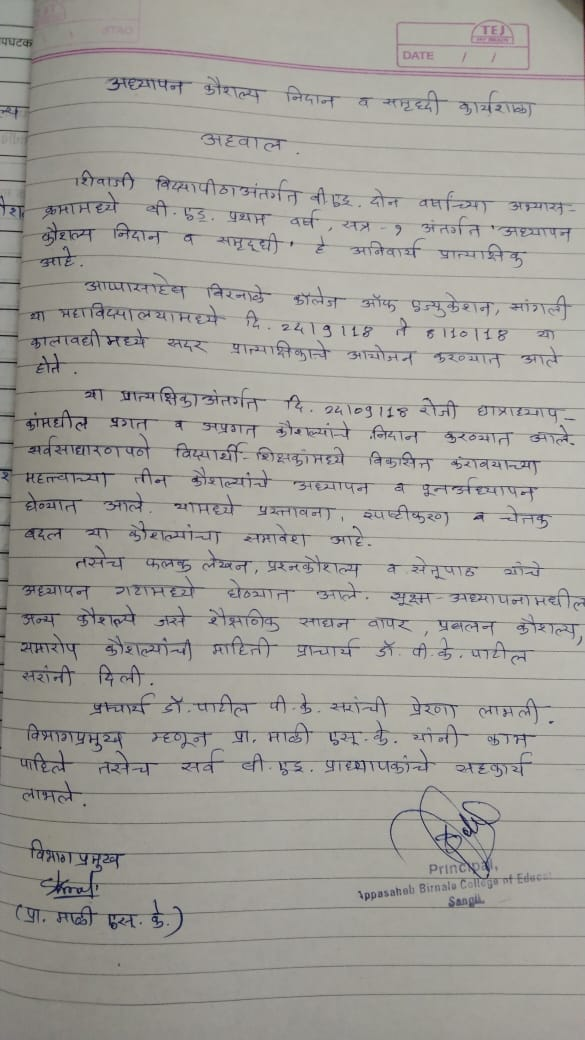 TEJ
DATE / /
अध्यापन कौशल्य निदान व समृध्दी कार्यशाळा
अहवाल.
शिवाजी विद्यापीठाअंतर्गत बी.एड्. दोन वर्षाच्या अभ्यास-
क्रमामध्ये बी.एड्. प्रथम वर्ष, सत्र-१ अंतर्गत 'अध्यापन
कौशल्य निदान व समृद्धी' हे अनिवार्य प्रात्याक्षिक
आहे.
आप्पासाहेब बिरनाळे कॉलेज ऑफ एज्युकेशन, सांगली
या महाविद्यालयामध्ये दि. 24/9/18 ते 8/10/18 या
कालावधीमध्ये सदर प्रात्याक्षिकाचे आयोजन करण्यात आले
होते.
या प्रात्यक्षिकाअंतर्गत दि. 24/09/18 रोजी छात्राध्याप-
कांमधील प्रगत व अप्रगत कौशल्यांचे निदान करण्यात आले.
सर्वसाधारणपणे विद्यार्थी-शिक्षकांमध्ये विकसित करावयाच्या
महत्त्वाच्या तीन कौशल्यांचे अध्यापन व पुनर्अध्यापन
घेण्यात आले. यामध्ये प्रस्तावना, स्पष्टीकरण व चेतक
बदल या कौशल्यांचा समावेश आहे.
तसेच फलक लेखन, प्रश्नकौशल्य व सेतूपाठ यांचे
अध्यापन गटामध्ये घेण्यात आले. सूक्ष्म-अध्यापनामधील
अन्य कौशल्ये जसे शैक्षणिक साधन वापर, प्रबलन कौशल्य,
समारोप कौशल्यांची माहिती प्राचार्य डॉ. बी. के. पाटील
सरांनी दिली.
प्राचार्य डॉ. पाटील बी. के. सरांची प्रेरणा लाभली.
विभागप्रमुख म्हणून प्रा. माळी एस्. के. यांनी काम
पाहिले तसेच सर्व बी. एड्. प्राध्यापकांचे सहकार्य
लाभले.
विभाग प्रमुख
(प्रा. माळी एस्. के.)
Principal,
Appasaheb Birnale College of Educat
Sangli.